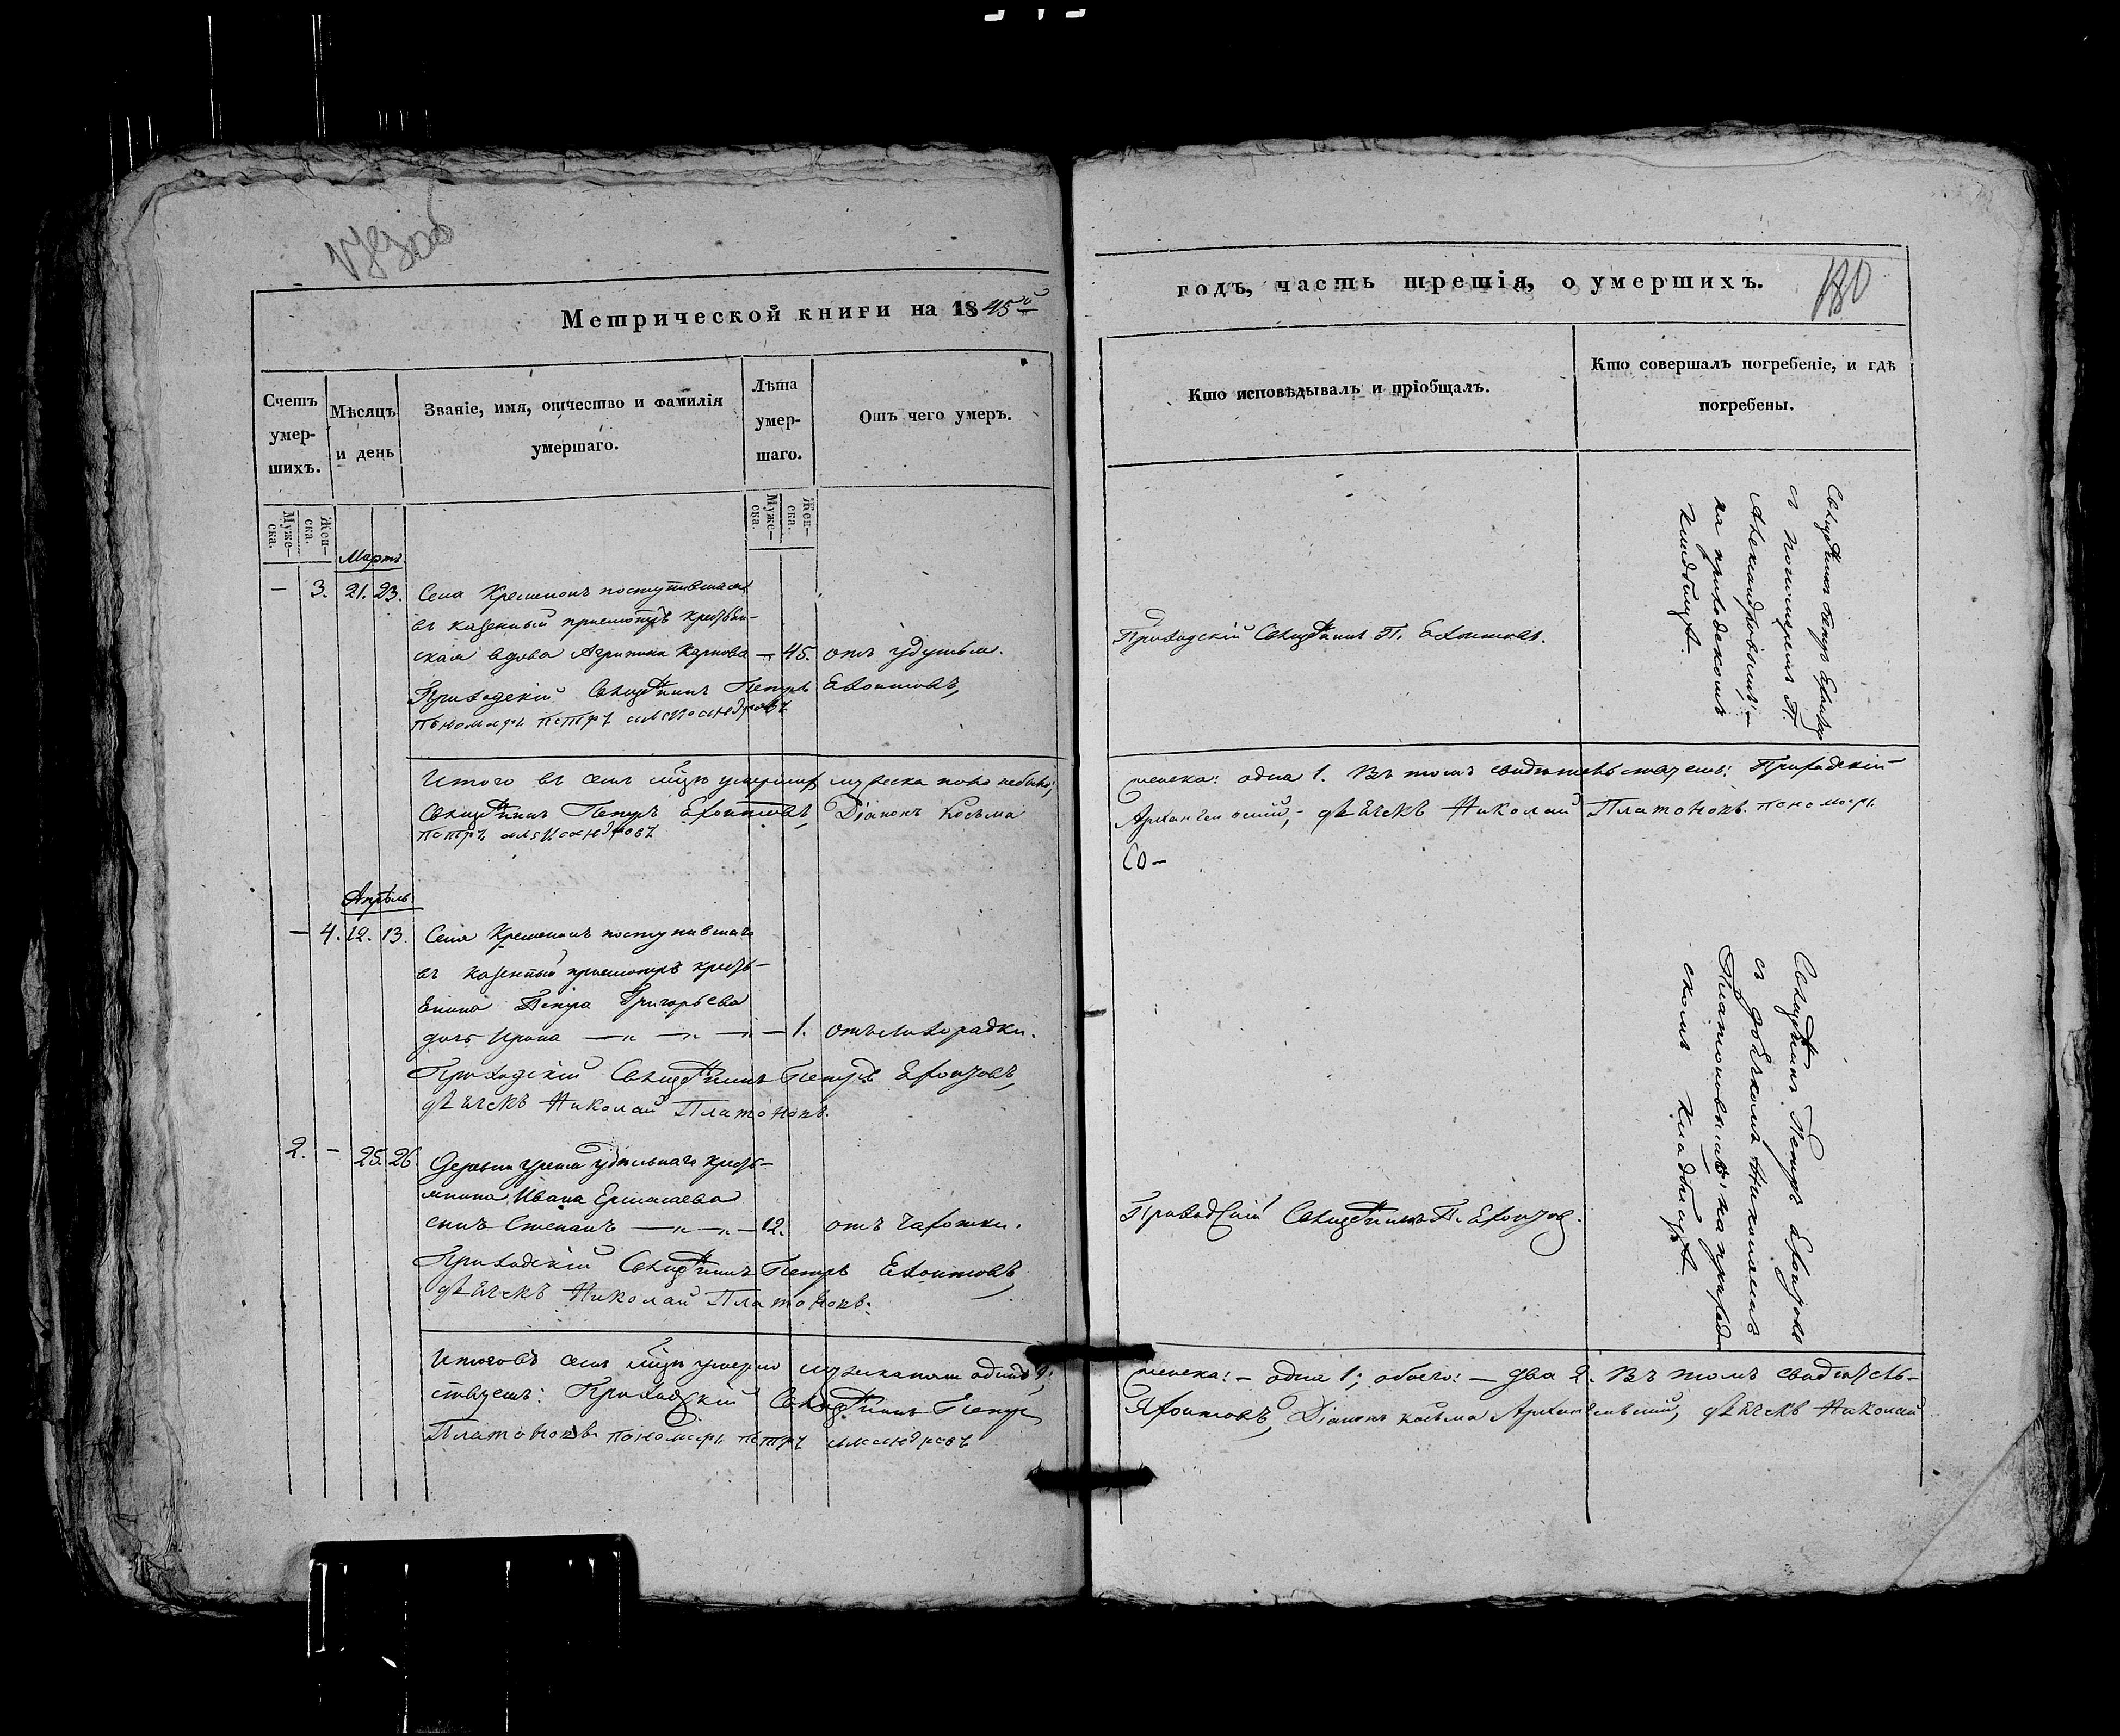 Метрической книги на 1845й
годъ, часть третія, о умершихъ.
180
Счетъ умер-шихъ.
Мѣсяцъ и день
Званіе, имя, отчество и фамилія умершаго.
Лѣта умер-шаго.
Отъ чего умеръ.
Кто исповѣдывалъ и пріобщалъ.
Кто совершалъ погребеніе, и гдѣ погребены.
Муже-ска.
Жен-ска.
Муже-ска.
Жен-ска.
Мартъ.
— 3. 21. 23. Села
въ казенный присмотръ крестьян-
ская вдова Агрипина Карпова — 45. отъ удушья.
Приходскій Священникъ Петръ
Пономарь Петръ Александровъ.
Приходскій Священникъ П.
Священникъ Петръ
съ пономаремъ П.
Александровымъ;
на приходскомъ
кладбищѣ.
Итого въ семъ мѣсяцѣ умерших мужеска пола небыло;
женска: одна 1. Въ томъ свидѣтельствуемъ: Приходскій
Священникъ Петръ Діаконъ Косьма
Архангельскій, дьячекъ Николай Платоновъ. пономарь
Петръ Александровъ
Апрѣль.
— 4. 12. 13. Села
въ казенный присмотръ кресть-
янина Петра Григорьева
дочь — „ — „ — „ — 1. отъ лихорадки.
Приходскій Священникъ Петръ
дьячекъ Николай Платоновъ.
2. — 25. 26. Деревни удѣльнаго кресть-
янина Ивана Ермолаева
сынъ Степанъ — „ — „ — 12. отъ чахотки.
Приходскій Священникъ Петръ
дьячекъ Николай Платоновъ.
Приходскій Священникъ П.
Священникъ Петръ
съ дьячкомъ Николаемъ
Платоновымъ; на приход-
скомъ кладбищѣ.
Итого въ семъ мѣсяцѣ умерло мужеска пола одинъ 1;
женска: — одна 1; обоего: — два 2. Въ томъ свидѣтель-
ствуемъ: Приходскій Священникъ Петръ
Діаконъ Косьма Архангельскій, дьячекъ Николай
Платоновъ. пономарь Петръ